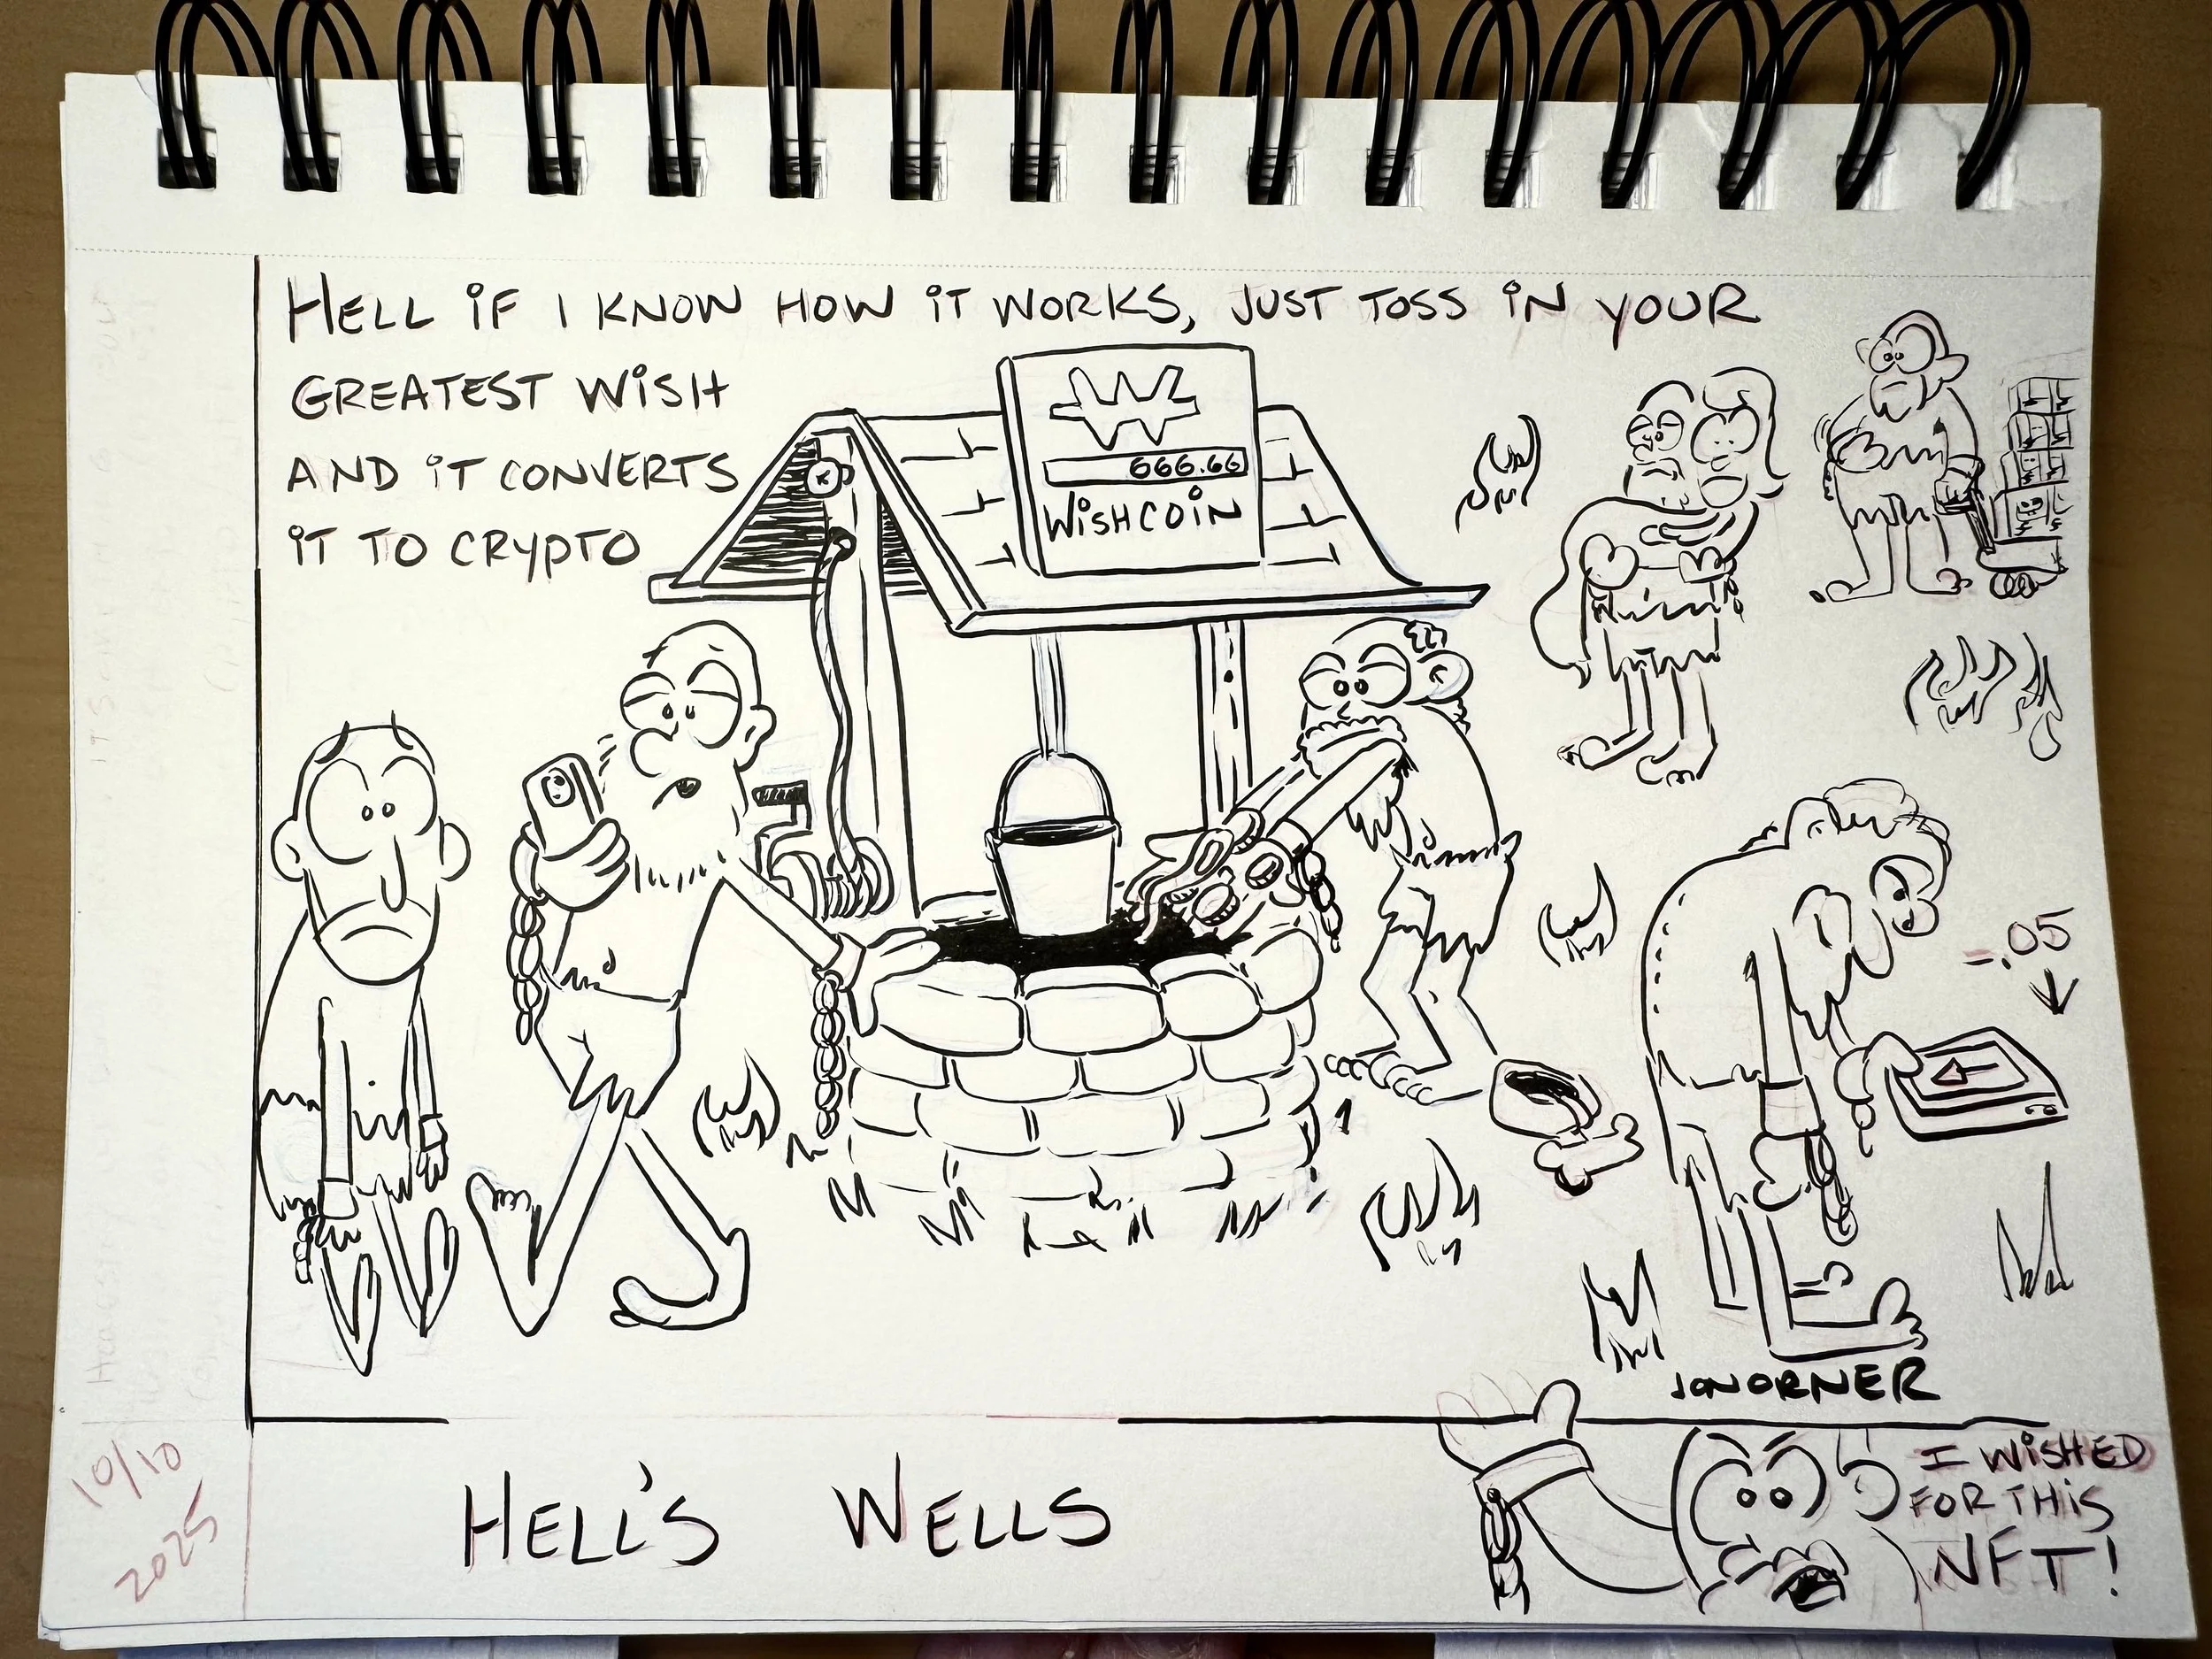 HELL IF I KNOW HOW IT WORKS, JUST TOSS IN YOUR
GREATEST WISH
AND IT CONVERTS
IT TO CRYPTO
W
666.66
WISHCOIN
-.05
JONORNER
HELL'S WELLS
I WISHED
FOR THIS
NFT!
10/10
2025